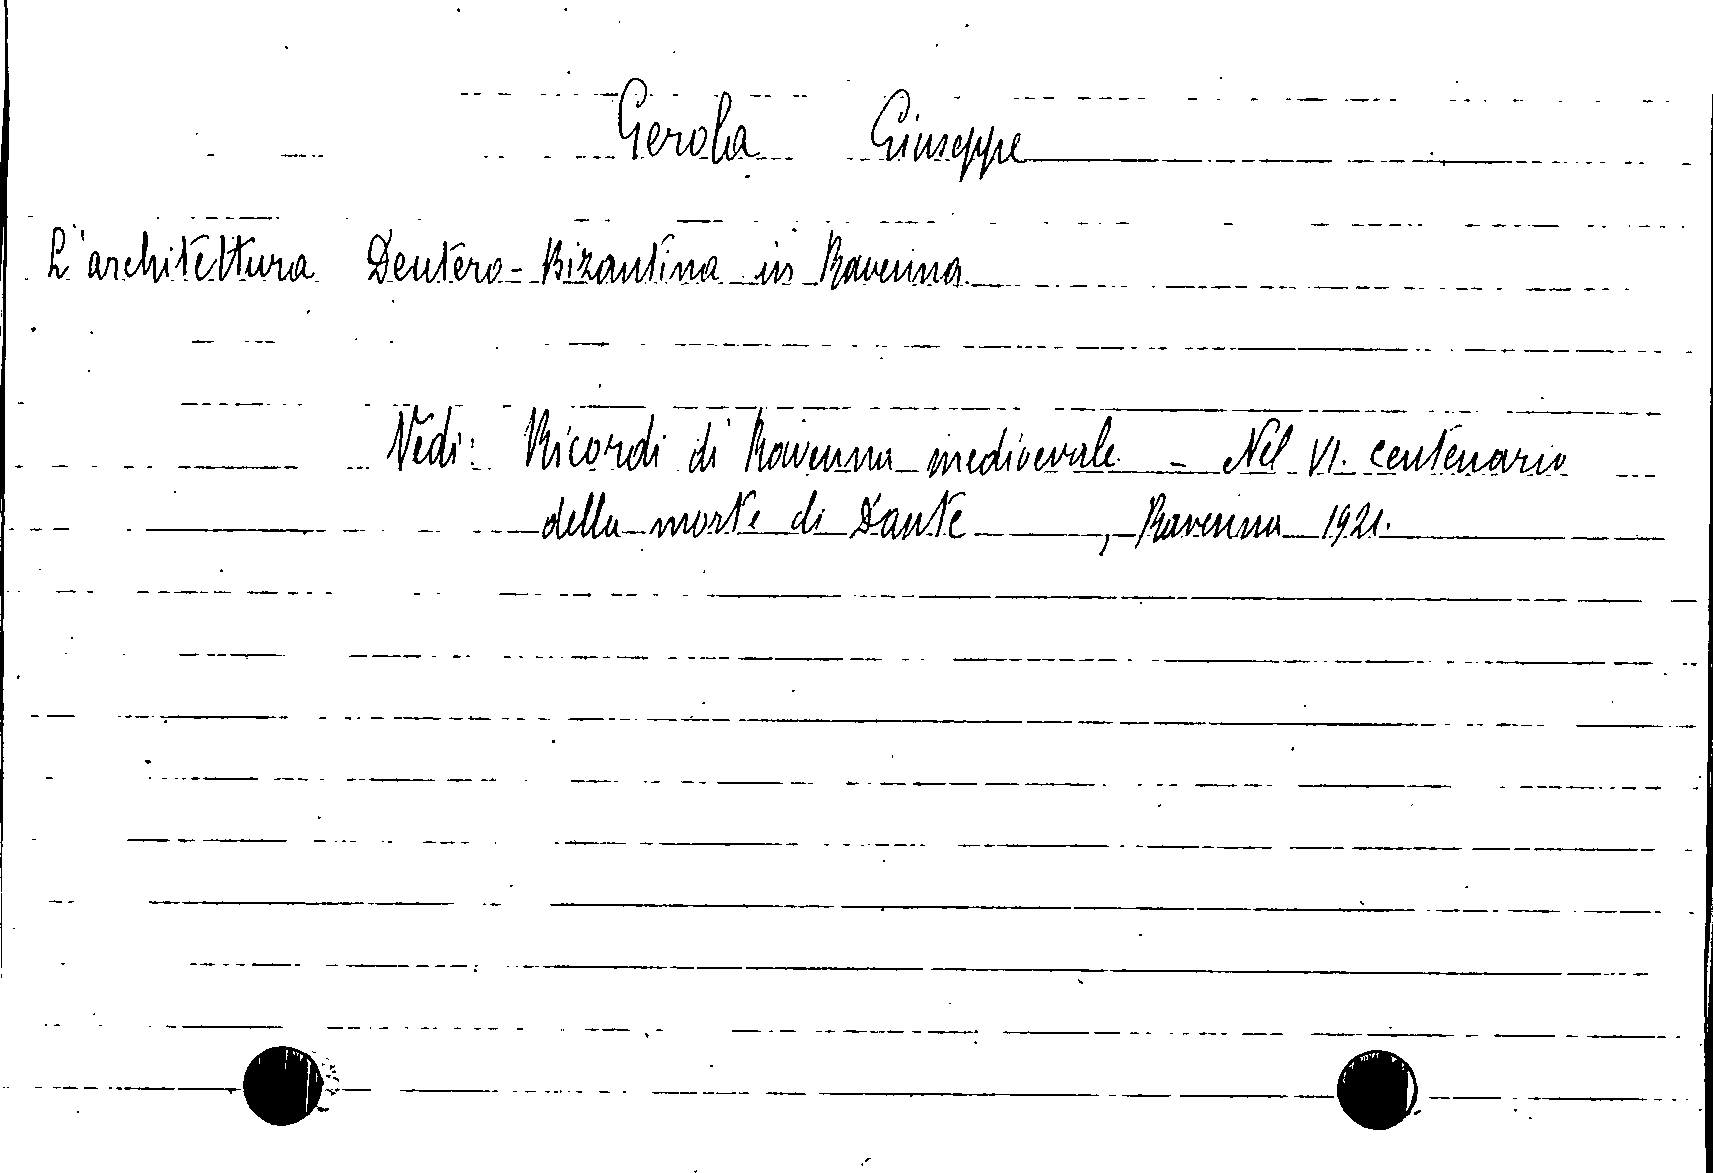 Gerola Giuseppe
L'architettura Deutero-Bizantina in Ravenna
Vedi: Ricordi di Ravenna medioevale - Nel VI. centenario
della morte di Dante , Ravenna 1921.